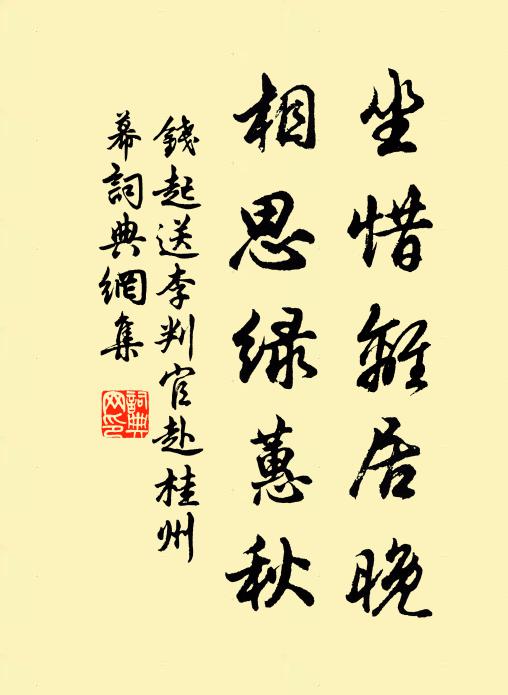 坐惜離居晚
相思緑蕙秋
錢起送李判官赴桂州
幕詞典網集
詞典網印